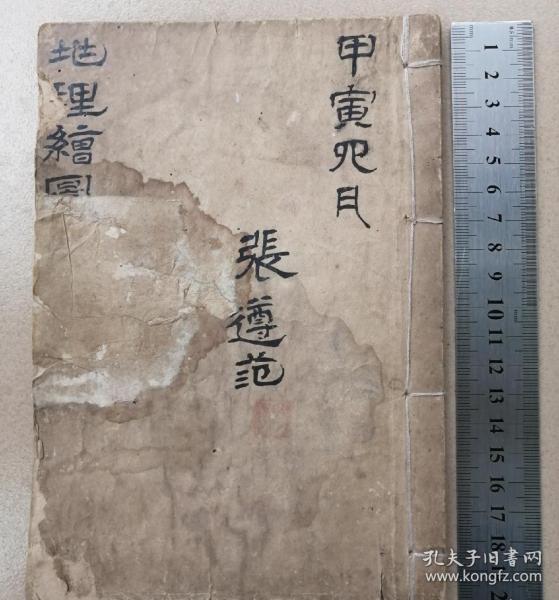 甲寅四月
張遵范
地理繪圖
1
2
3
4
5
6
7
8
9
10
11
12
13
14
15
16
17
18
孔夫子旧书网
www.kongfz.com